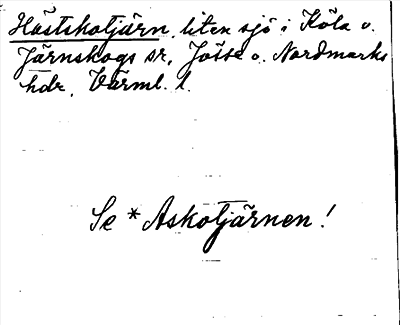 Hästskotjärn, liten sjö i Köla o.
Järnskogs sr, Jösse o. Nordmarks
hdr, Värml. l.
Se *Askotjärnen!